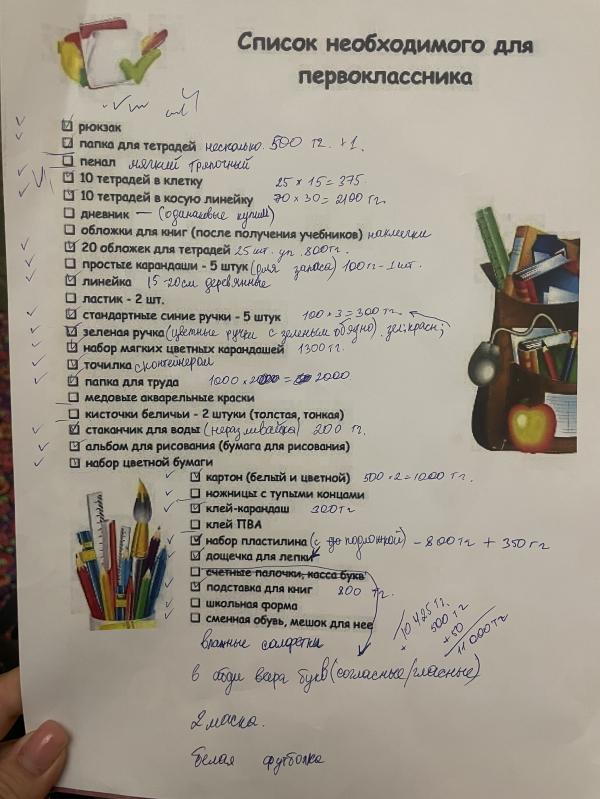 Список необходимого для
первоклассника
рюкзак
папка для тетрадей несколько. 500 тг. +1.
пенал мягкий тряпочный
10 тетрадей в клетку 25 × 15 = 375
10 тетрадей в косую линейку 70 × 30 = 2100 тг.
дневник — (одинаковые купим)
обложки для книг (после получения учебников) наклейки
20 обложек для тетрадей 25 шт. уп. 800 тг.
простые карандаши - 5 штук (для запаса) 100 тг - 1 шт.
линейка 15-20см деревянные
ластик - 2 шт.
стандартные синие ручки - 5 штук 100 × 3 = 300 тг.
зеленая ручка (цветные ручки с зеленым обядно). зел: красн;
набор мягких цветных карандашей 1300 тг.
точилка с контейнером
папка для труда 1000 × 2 = 2000
медовые акварельные краски
кисточки беличьи - 2 штуки (толстая, тонкая)
стаканчик для воды (неразливайка) 200 тг.
альбом для рисования (бумага для рисования)
набор цветной бумаги
картон (белый и цветной) 500 × 2 = 1000 тг.
ножницы с тупыми концами
клей-карандаш 300 тг
клей ПВА
набор пластилина (с подложкой) - 800 тг + 350 тг
дощечка для лепки
счетные палочки, касса букв
подставка для книг 800 тг.
школьная форма
сменная обувь, мешок для нее
+ 10 425 тг.
500 тг
+50
11 000 тг
влажные салфетки
веера букв (согласные/гласные)
2 маска.
белая футболка